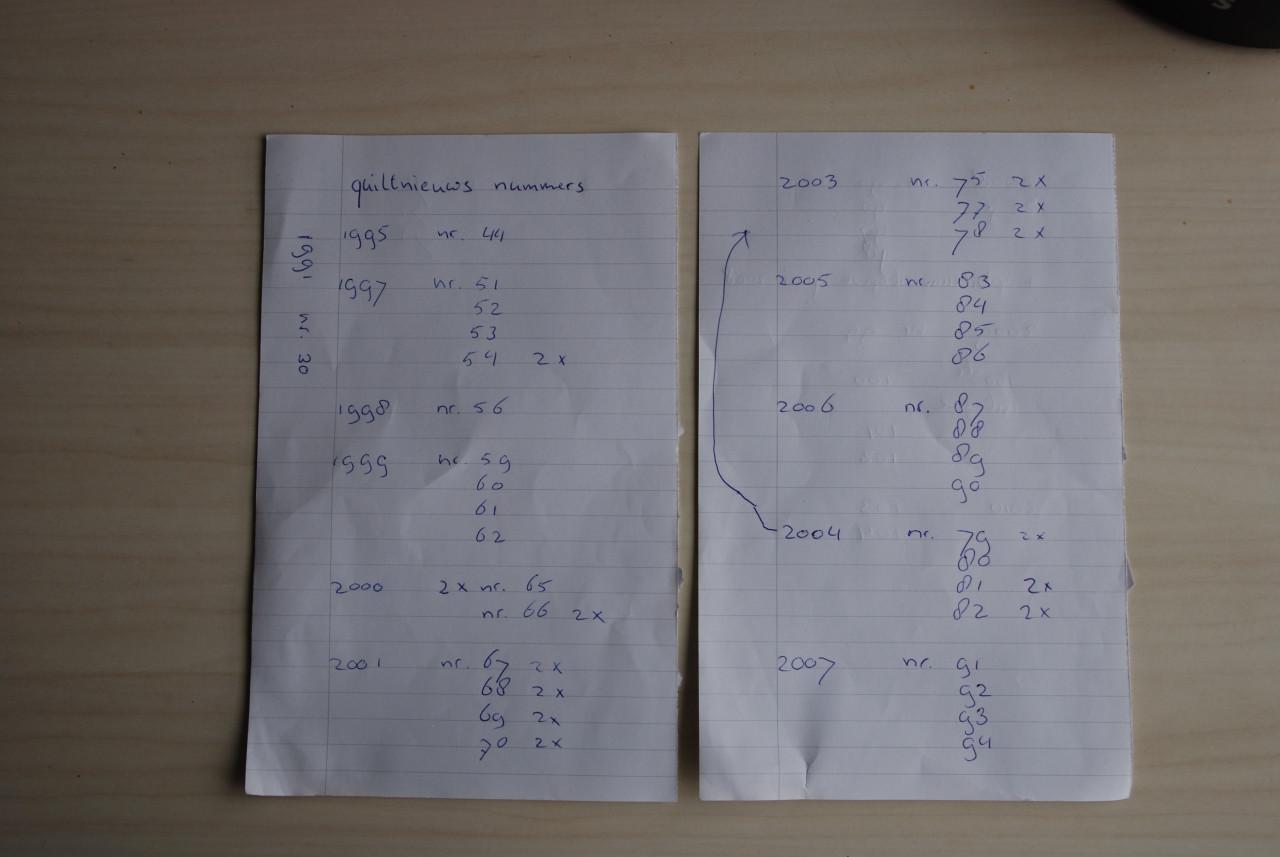 quiltnieuws nummers
1991 nr. 30
1995 nr. 44
1997 nr. 51
52
53
54 2x
1998 nr. 56
1999 nr. 59
60
61
62
2000 2x nr. 65
nr. 66 2x
2001 nr. 67 2x
68 2x
69 2x
70 2x
2003 nr. 75 2x
77 2x
78 2x
2005 nr. 83
84
85
86
2006 nr. 87
88
89
90
2004 nr. 79 2x
80
81 2x
82 2x
2007 nr. 91
92
93
94